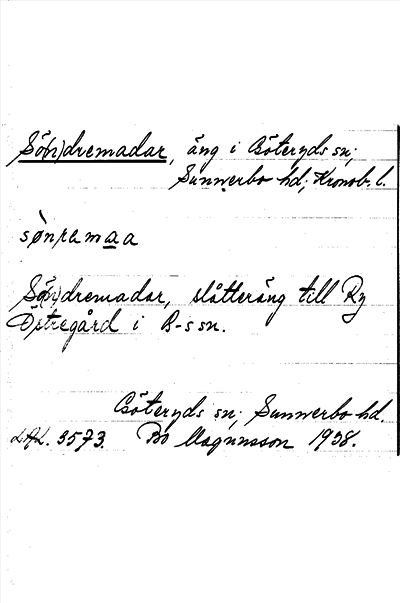 Sö(n)dremadar, äng i Göteryds sn;
Sunnerbo hd; Kronob. l.
Sö(n)dremadar, slåtteräng till Ry
Östregård i G-s sn.
Göteryds sn; Sunnerbo hd.
LAL. 3573. Bo Magnusson 1938.